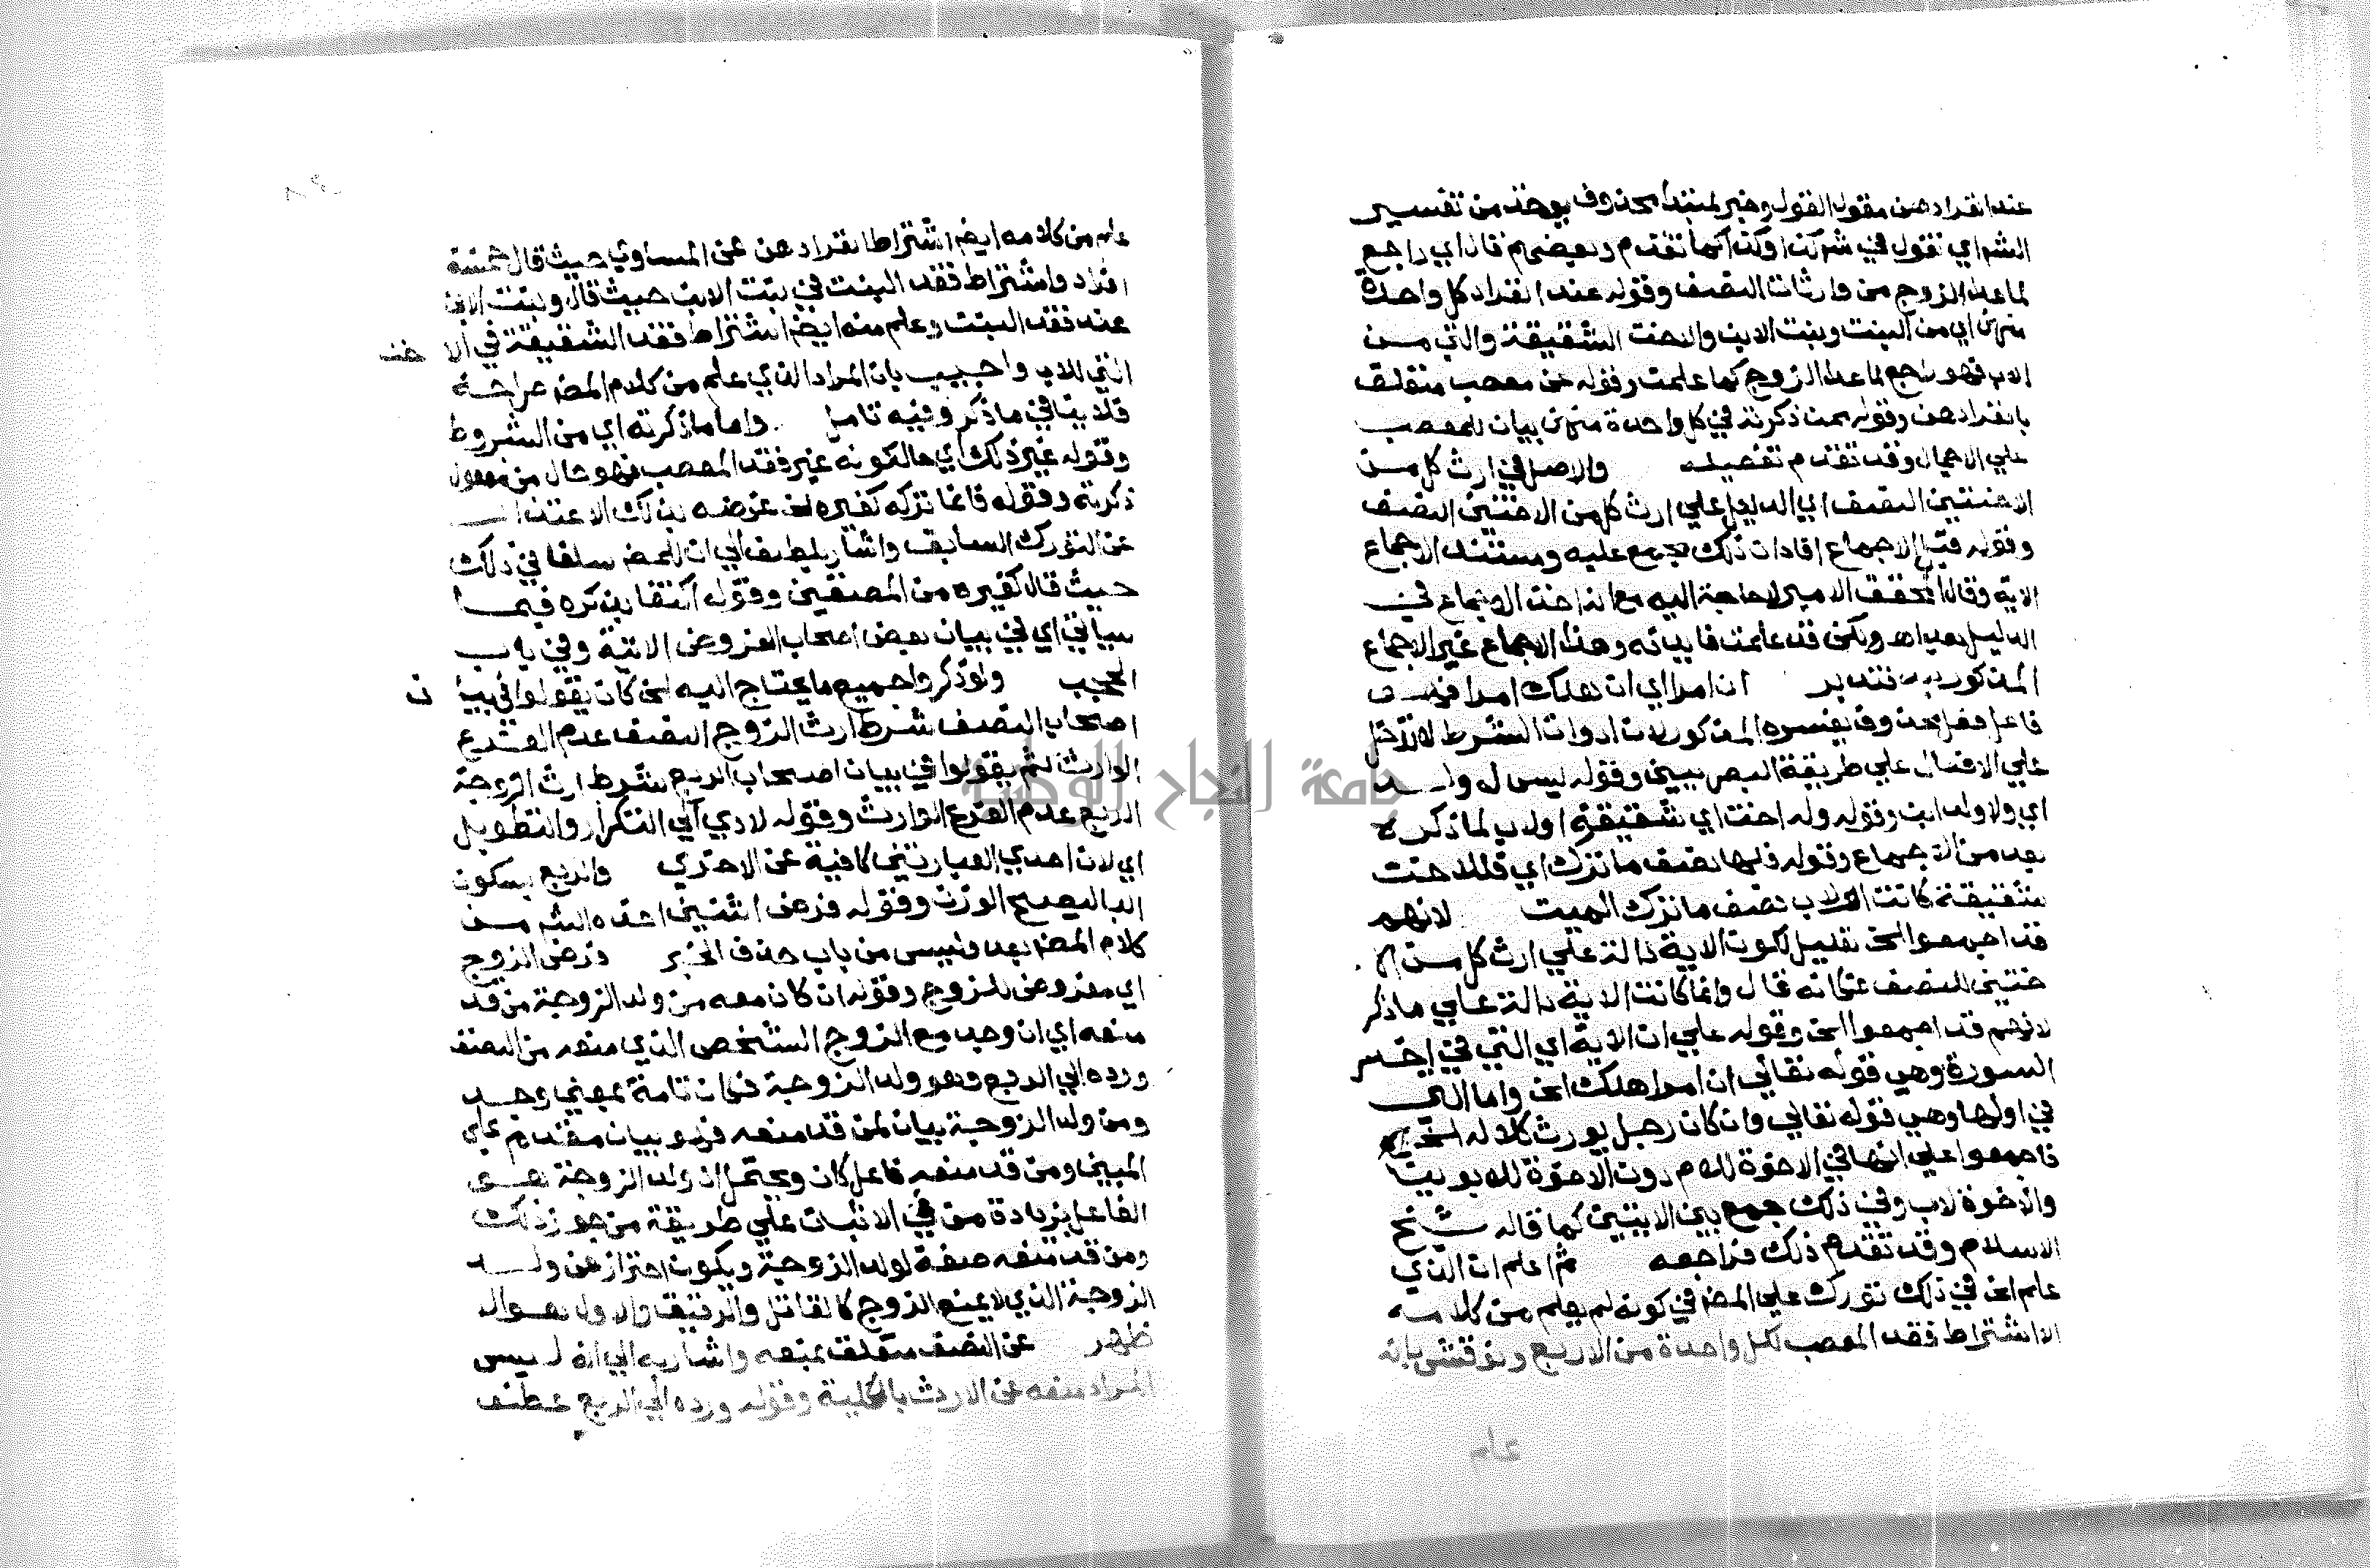 عند انفرادهن مقول القول وخبر لمبتدأ محذوف يؤخذ من تفسير
الشر اي نقول في شركت او كذا كما تقدم وبعضهم قال اي راجع
لما عدا الزوج من وارثات النصف وقوله عند انفراد كل واحدة
منهن اي من البنت وبنت الابن والاخت الشقيقة والتي مــن
الاب فهو راجع لما عدا الزوج كما علمت وقوله عن معصب متعلق
بانفرادهن وقوله ممن ذكرته في كل واحدة منهن بيان للمعصب
علي الاجمال وقد تقدم تفصيله والاصل في ارث كل مــن
الاختين النصف اي الدليل علي ارث كل من الاختين النصف
وقوله قبل الاجماع افاد ان ذلك مجمع عليه ومستند الاجماع
الاية وقال المحقق الامير لا حاجة اليه مع اخذ الاجماع فيــ
الدليل بعد اهـ ولكن قد علمت فايدته وهذا الاجماع غير الاجماع
المذكور بعد فتدبر ان امرا اي ان هلك امرا فهــو
فاعل فعل محذوف يفسره المذكور لان ادوات الشرط لا تدخل
علي الافعال علي طريقة البصريين وقوله ليس له ولــد
اي ولا ولد ابن وقوله وله اخت اي شقيقة او لاب لما ذكره
بعد من الاجماع وقوله فلها نصف ما ترك اي فللاخت
شقيقة كانت او لاب نصف ما ترك الميت لانهم
قد اجمعوا الخ تعليل لكون الاية دالة علي ارث كل مــن الا
ختين النصف فكانه قال وانما كانت الاية دالة علي ما ذكر
لانهم قد اجمعوا الخ وقوله علي ان الاية اي التي في اخــر
السورة وهي قوله تعالي ان امرا هلك الخ واما التي
في اولها وهي قوله تعالي وان كان رجل يورث كلالة الخ
فاجمعوا علي انها في الاخوة للام دون الاخوة للابوين
والاخوة لاب وفي ذلك جمع بين الايتين كما قاله شــيخ
الاسلام وقد تقدم ذلك فراجعه ثم اعلم ان الذي
علم الخ في ذلك تورك علي المصـ في كونه لم يعلم من كلامــه
الا اشتراط فقد المعصب لكل واحدة من الاربع ونوقش بانه
علم
علم من كلامه ايضا اشتراط انفرادهن عن المساوي حيث قال خمسة
افراد واشتراط فقد البنت في بنت الابن حيث قال وبنت الابن
عند فقد البنت وعلم منه ايضا اشتراط فقد الشقيقة في الاخت
التي للاب واجيب بان المراد الذي علم من كلام المصـ صراحة
فلا ينافي ما ذكر وفيه تامل واما ما ذكرته اي من الشروط
وقوله غير ذلك اي حال كونه غير فقد المعصب فهو حال من مفعول
ذكرته وقوله فانما تركه كغيره الخ غرضه بذلك الاعتذار
عن التورك السابق واشار بلطيف الي ان للمصـ سلفا في ذلك
حيث قال كغيره من المصنفين وقوله اكتفا بذكره فيمــا
سياتي اي في بيان بعض اصحاب الفروض الاتية وفي باب
الحجب ولو ذكروا جميع ما يحتاج اليه الخ كان يقولوا في بيان
اصحاب النصف شرط ارث الزوج النصف عدم الفرع
الوارث ثم يقولوا في بيان اصحاب الربع شرط ارث الزوجة
الربع عدم الفرع الوارث وقوله لادي الي التكرار والتطويل
اي لان احدي العبارتين كافية عن الاخري والربع بسكون
البا ليصح الوزن وقوله فرض اثنين اخذه الشر مــن
كلام المصـ بعد وليس من باب حذف الخبر فرض الزوج
اي مفروض للزوج وقوله ان كان معه من ولد الزوجة من قد
منعه اي ان وجد مع الزوج الشخص الذي منعه من النصف
ورده الي الربع وهو ولد الزوجة فكان تامة بمعني وجــد
ومن ولد الزوجة بيان لمن قد منعه فهو بيان مقدم علي
المبين ومن قد منعه فاعل كان ويحتمل ان ولد الزوجة هــو
الفاعل بزيادة من في الاثبات علي طريقة من جوز ذلك
ومن قد منعه صفة لولد الزوجة ويكون احترازا عن ولــد
الزوجة الذي لا يمنع الزوج كالقاتل والرقيق والاول هو الا
ظهر عن النصف متعلق بمنعه واشار به الي انه ليس
المراد منعه عن الارث بالكلية وقوله ورده الي الربع عطف
جامعة النجاح الوطنية